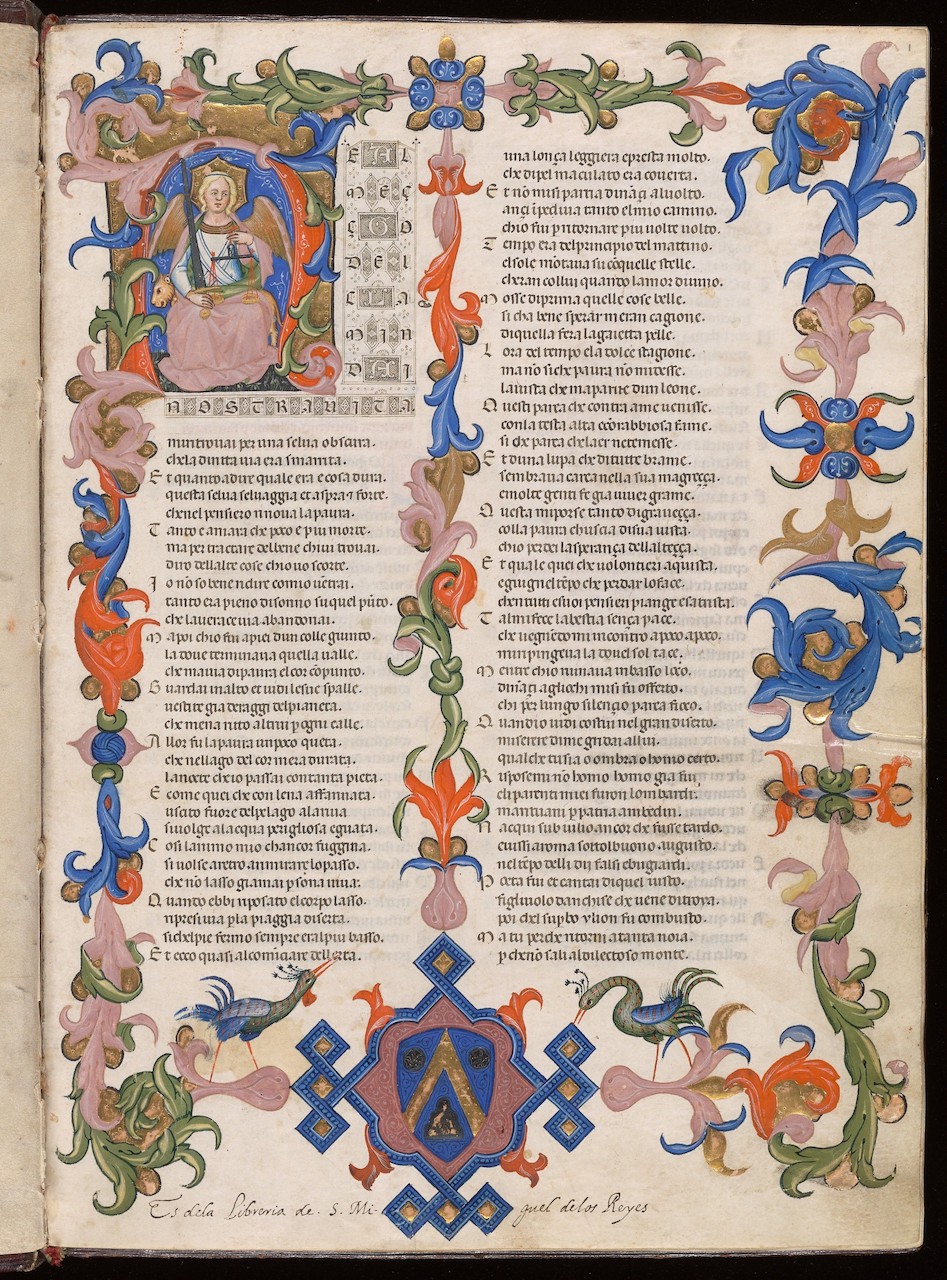 NEL
MEÇ
ÇO
DEL
CA
MIN
DI
NOSTRA UITA
mi ritrouai per una selua obscura.
che la diritta uia era smarrita.
Et quanto a dire quale era e cosa dura.
questa selua seluaggia et aspra ⁊ forte.
che nel pensiero rinoua la paura.
Tanto e amara che poco e piu morte.
ma per tractare del bene chiui trouai.
diro dellalte cose chio uo scorte.
Io nō so bene ridire comio uētrai.
tanto era pieno di sonno su quel pūto.
che la uerace uia abandonai.
Ma poi chio fui apie dun colle giunto.
la doue terminaua quella ualle.
che mauia di paura el cor cōpunto.
Guardai in alto et uidi le sue spalle.
uestite gia de raggi del pianeta.
che mena ritto altrui p ogni calle.
Allor fu la paura un poco queta.
che nel lago del cor mera durata.
la nocte chio passai con tanta pieta.
E come quei che con lena affannata.
uscito fuore del pelago alla riua
si uolge alacqua perigliosa eguata.
Cosi lanimo mio chancor fuggiua.
si uolse aretro a rimirare lo passo.
che nō lasso giamai psona uiua.
Quando ebbi riposato el corpo lasso.
ripresi uia p la piaggia diserta.
si chel pie fermo sempre era l piu basso.
Et ecco quasi al comīciare dellerta.
una lonça leggiera e presta molto.
che di pel maculato era couerta.
Et nō mi si partia dināçi al uolto.
ançi īpediua tanto el mio camino.
chio fui p ritornare piu uolte uolto.
Tempo era del principio del mattino.
el sole mōtaua su cō quelle stelle.
cheran collui quando lamor diuino.
Mosse di prima quelle cose belle.
si cha bene sperar mera cagione.
di quella fera la gaietta pelle.
Lora del tempo e la dolce stagione.
ma nō si che paura nō mi desse.
la uista che maparue dun leone.
Questi parea che contra a me uenisse.
con la testa alta e cō rabbiosa fame.
si che parea che laer ne temesse.
Et duna lupa che di tutte brame.
sembraua carca nella sua magreçça.
e molte genti fe gia uiuer grame.
Questa mi porse tanto di graueçça.
colla paura chuscia di sua uista.
chio perdei la sperança dell alteçça.
Et quale quei che uolontieri aquista.
e giugne l tēpo che perdar lo face.
chen tutti e suoi pensieri piange e satrista.
Tal mi fece la bestia sença pace.
che uegnēdomi incontro a poco a poco.
mi ripingeua la doue l sol tace.
Mentre chio ruinaua in basso loco.
dināçi agliochi mi si fu offerto.
chi per lungo silençio parea fioco.
Quandio uidi costui nel gran diserto.
miserere di me gridai allui.
qual che tu sia o ombra o homo certo.
Risposemi nō homo homo gia fui
e li parenti miei furon lombardi.
mantuani p patria ambedui.
Nacqui sub iulio ancor che fusse tardo.
e uissi a roma sottol buono augusto.
nel tēpo delli dii falsi e bugiardi.
Poeta fui et cantai di quel iusto.
figliuolo danchise che uene di troya.
poi chel supbo ylion fu combusto.
Ma tu perche ritorni a tanta noia.
p che nō sali al dilectoso monte.
Es dela Libreria de S. Miguel delos Reyes